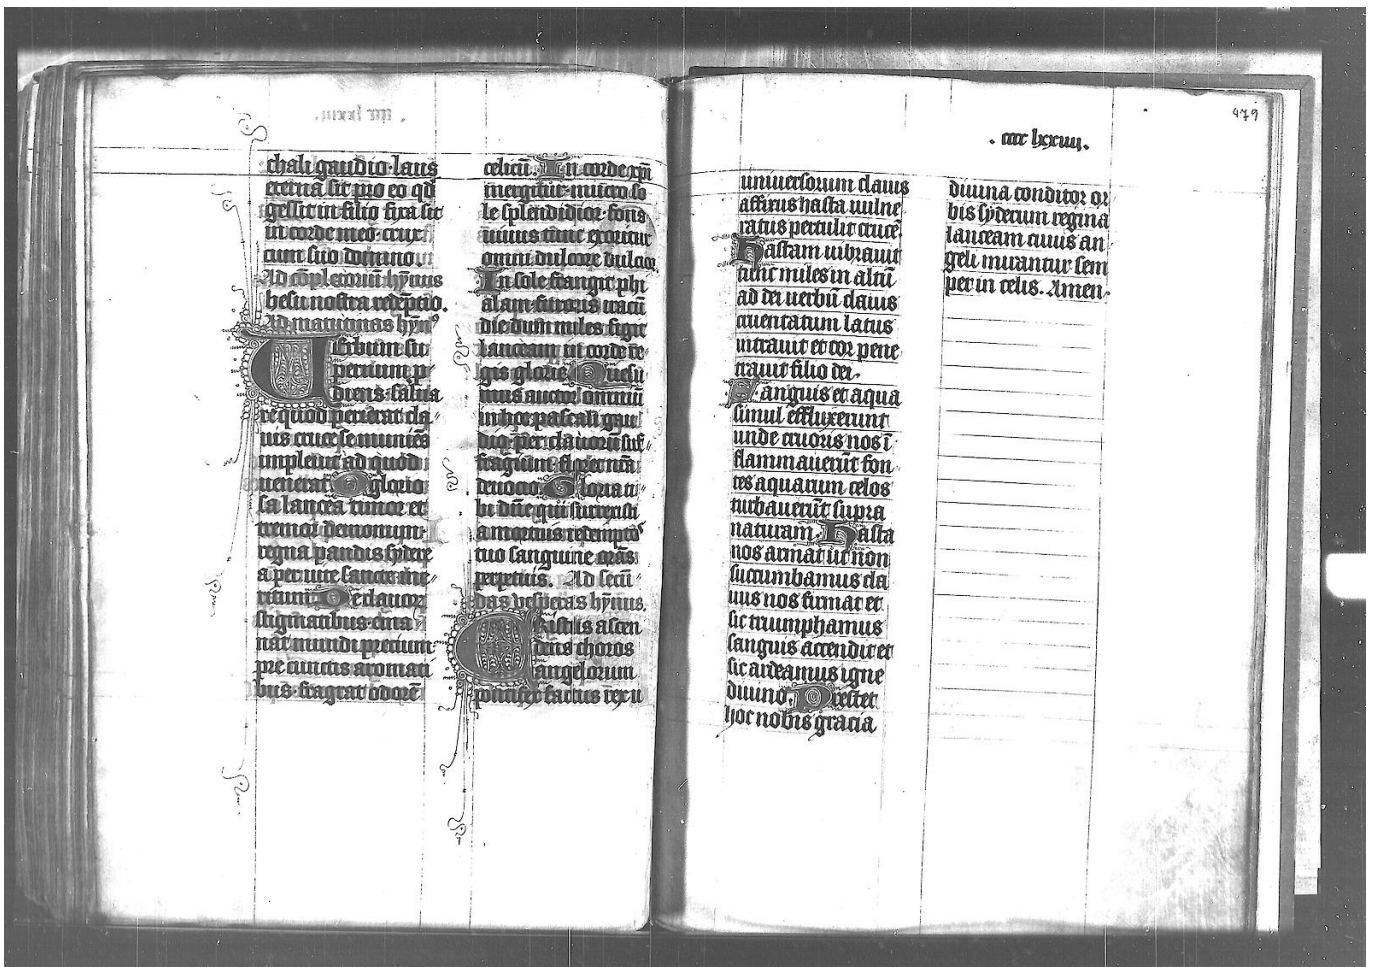 chali gaudio laus
eterna sit pro eo qd
gessit in filio fixa sit
in corde meo crux
cum suo domino.
Ad cōpletoriū hȳnus
Ihesu nostra redēptio.
Ad matutinas hȳn9
Verbum su
pernum p
diens salua
re quod perierat cla
uis cruce se muniēs
impleuit ad quod
uenerat O glorio
sa lancea timor et
tremor demonum
regna pandis sydere
a per uite sancte me
ritum De clauorū
stigmatibus ema
nat mundi precium
pre cunctis aromati
bus fragrat odorē
celicū. In corde xpi
mergitur mucro so
le splendidior fons
uiuus tunc exoritur
omni dulcore dulcior
In sole frangit phi
alam furoris iracū
die dum miles figit
lanceam in corde re
gis glorie Quesu
mus auctor omniū
in hoc paschali gau
dio per clauorū suf
fragium floret nr̄a
deuocio Gloria ti
bi dn̄e qui surrexisti
a mortuis redemptos
tuo sanguine orās
perpetuis. Ad secū
das vesperas hȳnus.
Christus ascen
dens choros
angelorum
pontifex factus rex u
. cccc lxxiiij.
479
uniuersorum clauis
affixus hasta uulne
ratus pertulit crucē.
Hastam uibrauit
tunc miles in altū
ad dei uerbū clauis
cruentatum latus
intrauit et cor pene
trauit filio dei.
Sanguis et aqua
simul effluxerunt
unde cruoris nos ī
flammauerūt fon
tes aquarum celos
turbauerūt supra
naturam. Hasta
nos armat ut non
succumbamus cla
uus nos firmat et
sic triumphamus
sanguis accendit et
sic ardeamus igne
diuino. Prestet
hoc nobis gracia
diuina conditor or
bis syderum regina
lanceam cuius an
geli mirantur sem
per in celis. Amen.